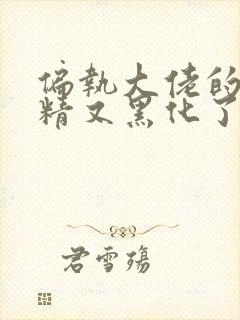 偏执大佬的
精又黑化了
君雪殇